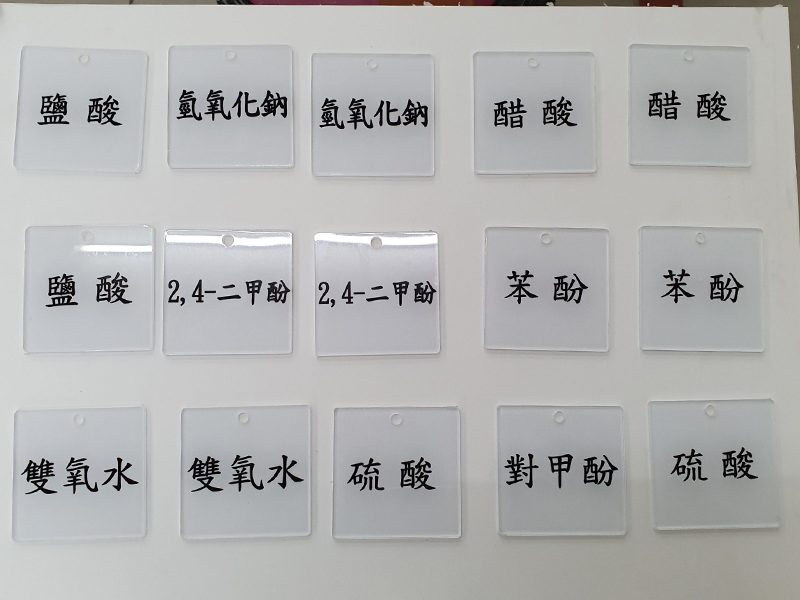 鹽酸
氫氧化鈉
氫氧化鈉
醋酸
醋酸
鹽酸
2,4-二甲酚
2,4-二甲酚
苯酚
苯酚
雙氧水
雙氧水
硫酸
對甲酚
硫酸